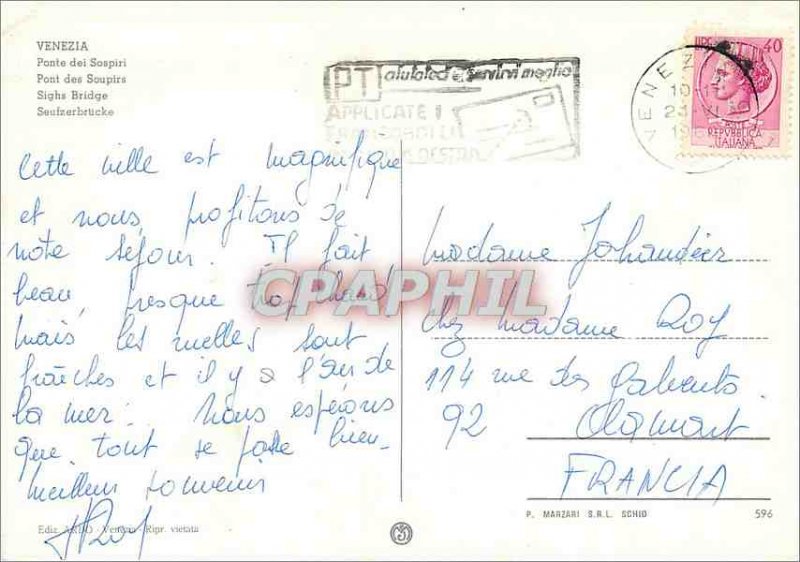 VENEZIA
Ponte dei Sospiri
Pont des Soupirs
Sighs Bridge
Seufzerbrücke
PT aiutateci a servirvi meglio
APPLICATE I
FRANCOBOLLI
DESTRA
VENEZ
10-1
23
196
LIRE 40
POSTE
REPVBBLICA
ITALIANA
Cette ville est magnifique
et nous profitons de
notre séjour. Il fait
beau, presque trop chaud
mais les ruelles sont
fraîches et il y a l'air de
la mer. Nous espérons
que tout se passe bien.
meilleur souvenir
Madame
chez Madame Roy
114 rue des
92 Clamart
FRANCIA
CPAPHIL
Ediz. ARDO - Venezia - Ripr. vietata
P. MARZARI S.R.L. SCHIO
596